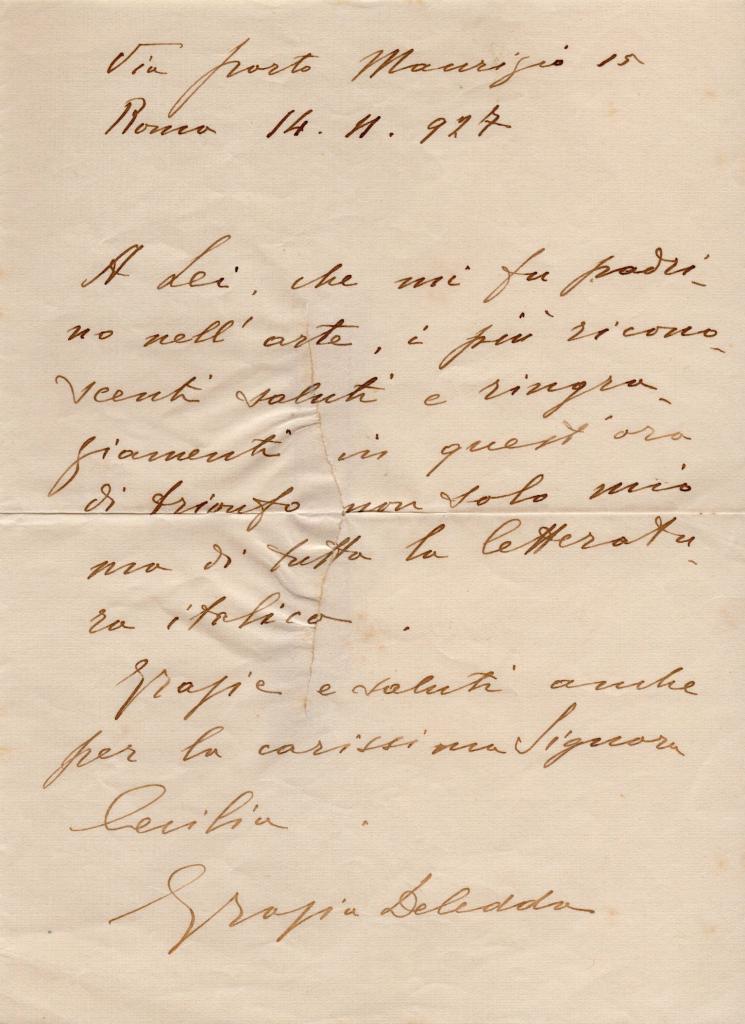 Via Porto Maurizio 15
Roma 14. 11. 927
A Lei, che mi fu padri-
no nell'arte, i più ricono-
scenti saluti e ringra-
ziamenti in quest'ora
di trionfo non solo mio
ma di tutta la letteratu-
ra italica.
Grazie e saluti anche
per la carissima Signora
Cecilia.
Grazia Deledda